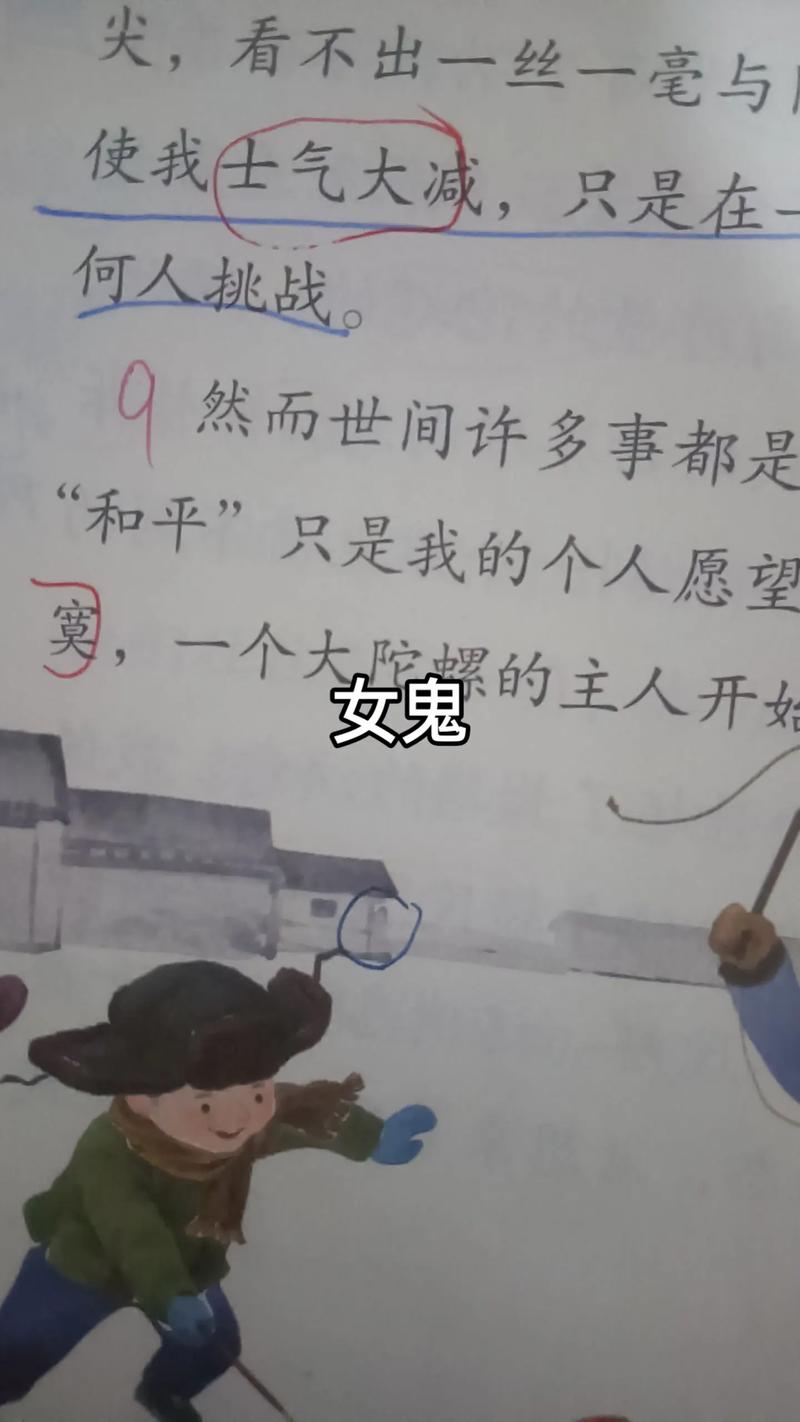 尖，看不出一丝一毫与
使我士气大减，只是在一
何人挑战。
9 然而世间许多事都是
“和平”只是我的个人愿望
寞，一个大陀螺的主人开始
女鬼